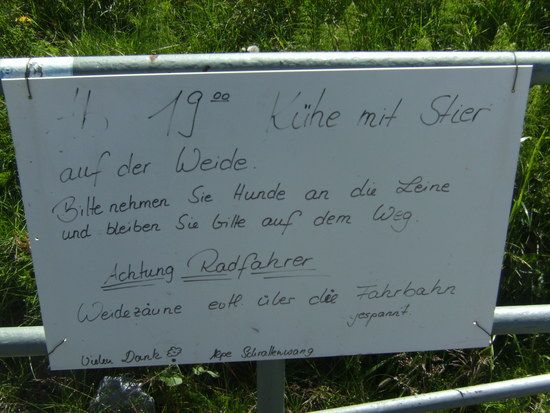 19 00 Kühe mit Stier
auf der Weide.
Bitte nehmen Sie Hunde an die Leine
und bleiben Sie bitte auf dem Weg.
Achtung Radfahrer
Weidezäune evtl. über die Fahrbahn
gespannt.
Vielen Dank Alpe Schrattenwang